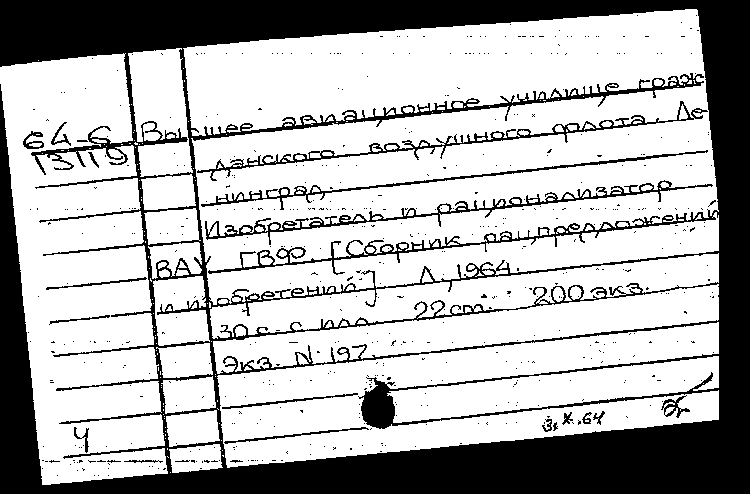 64-6 Высшее авиационное училище граж
13119 данского воздушного флота. Ле-
нинград.
Изобретатель и рационализатор
ВАУ ГВФ. [Сборник рацпредложений
и изобретений] Л., 1964.
30 с. с илл. 22 см. 200 экз.
Экз. № 197.
Ч
3.X.64